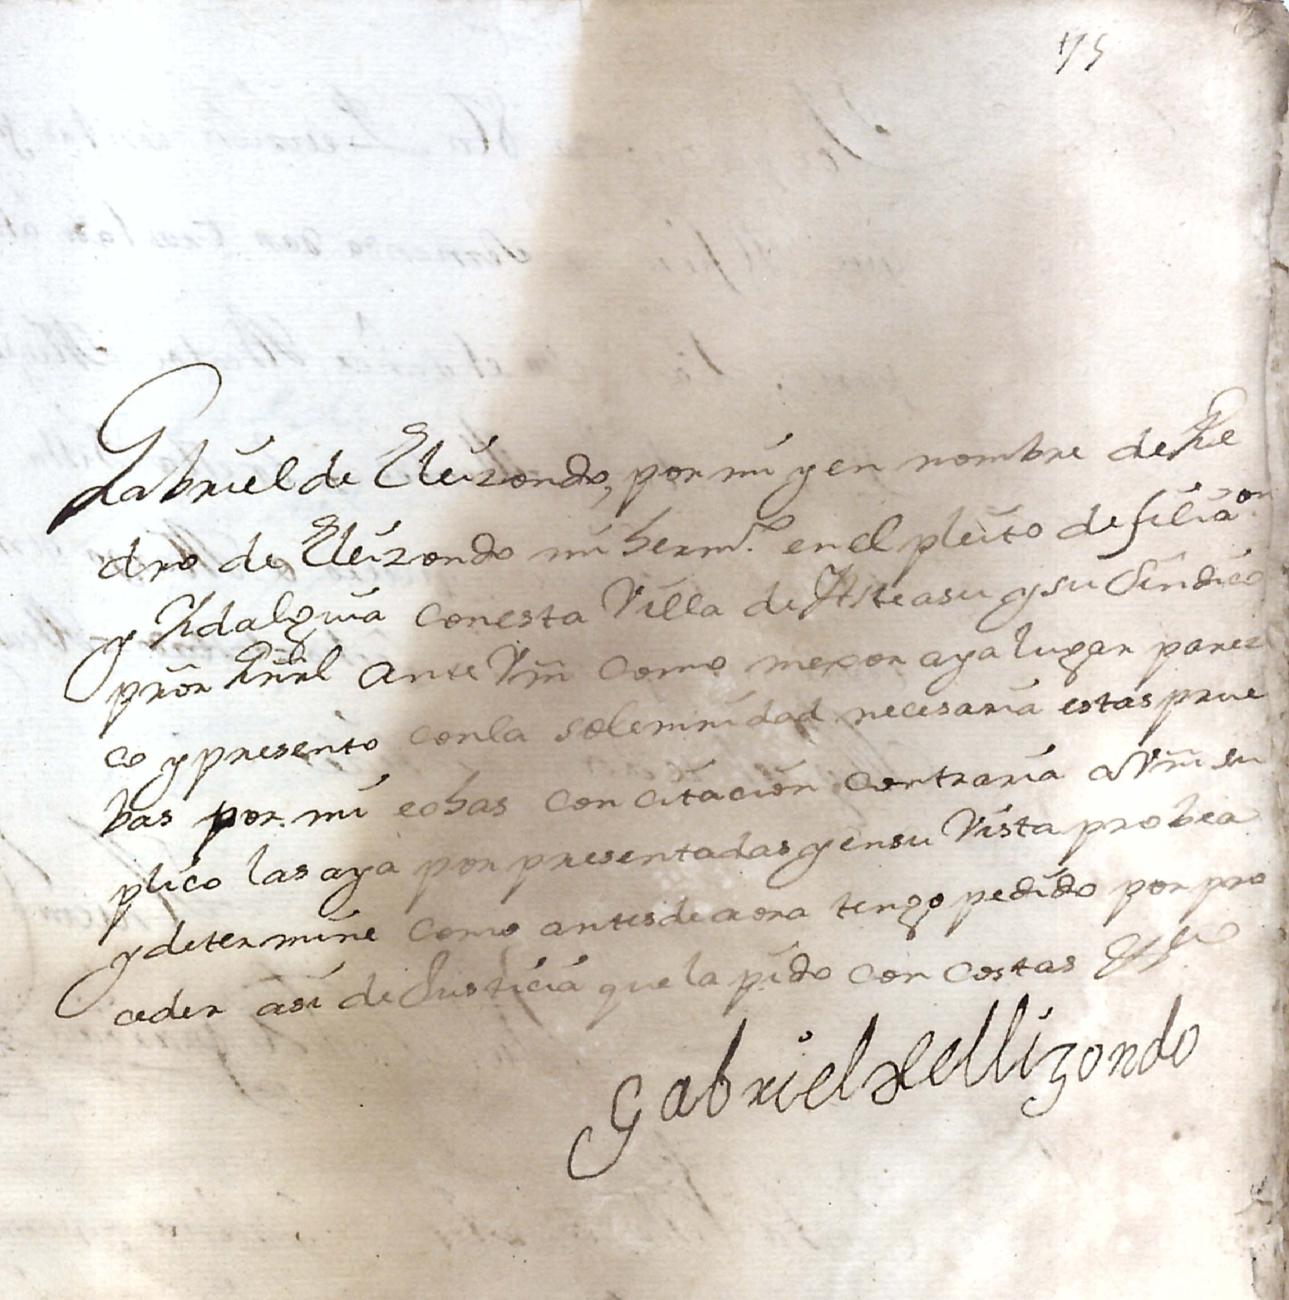 75
Gabriel de Eleizondo, por mi y en nombre de Pe
dro de Eleizondo mi herm.o en el pleito de filiaon
y Hidalguia con esta Villa de Asteasu y su Sindico
pror Gnrl ante Vm como mexor aya lugar parez
co y presento con la solemnidad necesaria estas prue
bas por mi echas con citacion contraria a Vm su
plico las aya por presentadas y en su Vista probea
y determine como antes de aora tengo pedido por pro
ceder asi de Justicia que la pido con costas
Gabriel de ellizondo